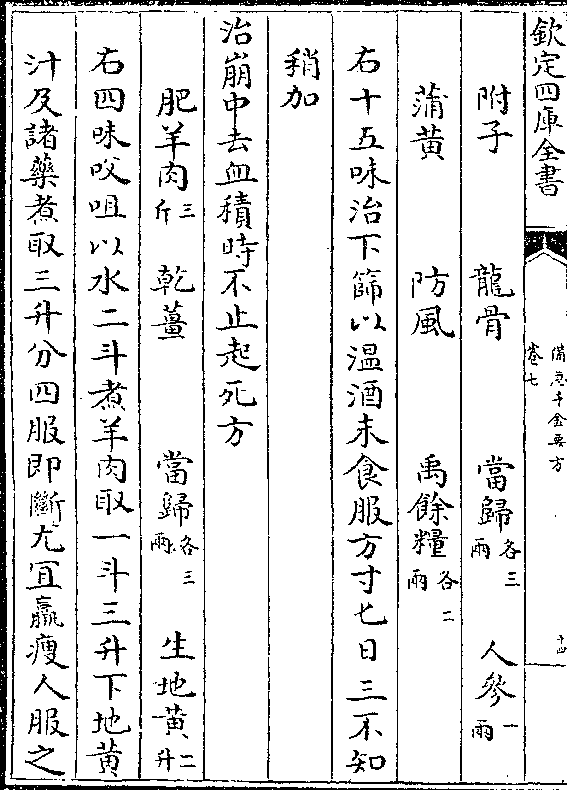 欽定四庫全書
備急千金要方
卷七
十四
附子　龍骨　當歸各三兩　人參一兩
蒲黄　防風　禹餘糧各二兩
右十五味治下篩以温酒未食服方寸匕日三不知
稍加
治崩中去血積時不止起死方
肥羊肉三斤　乾薑　當歸各三兩　生地黄二升
右四味㕮咀以水二斗煮羊肉取一斗三升下地黄
汁及諸藥煮取三升分四服即斷尤宜羸瘦人服之